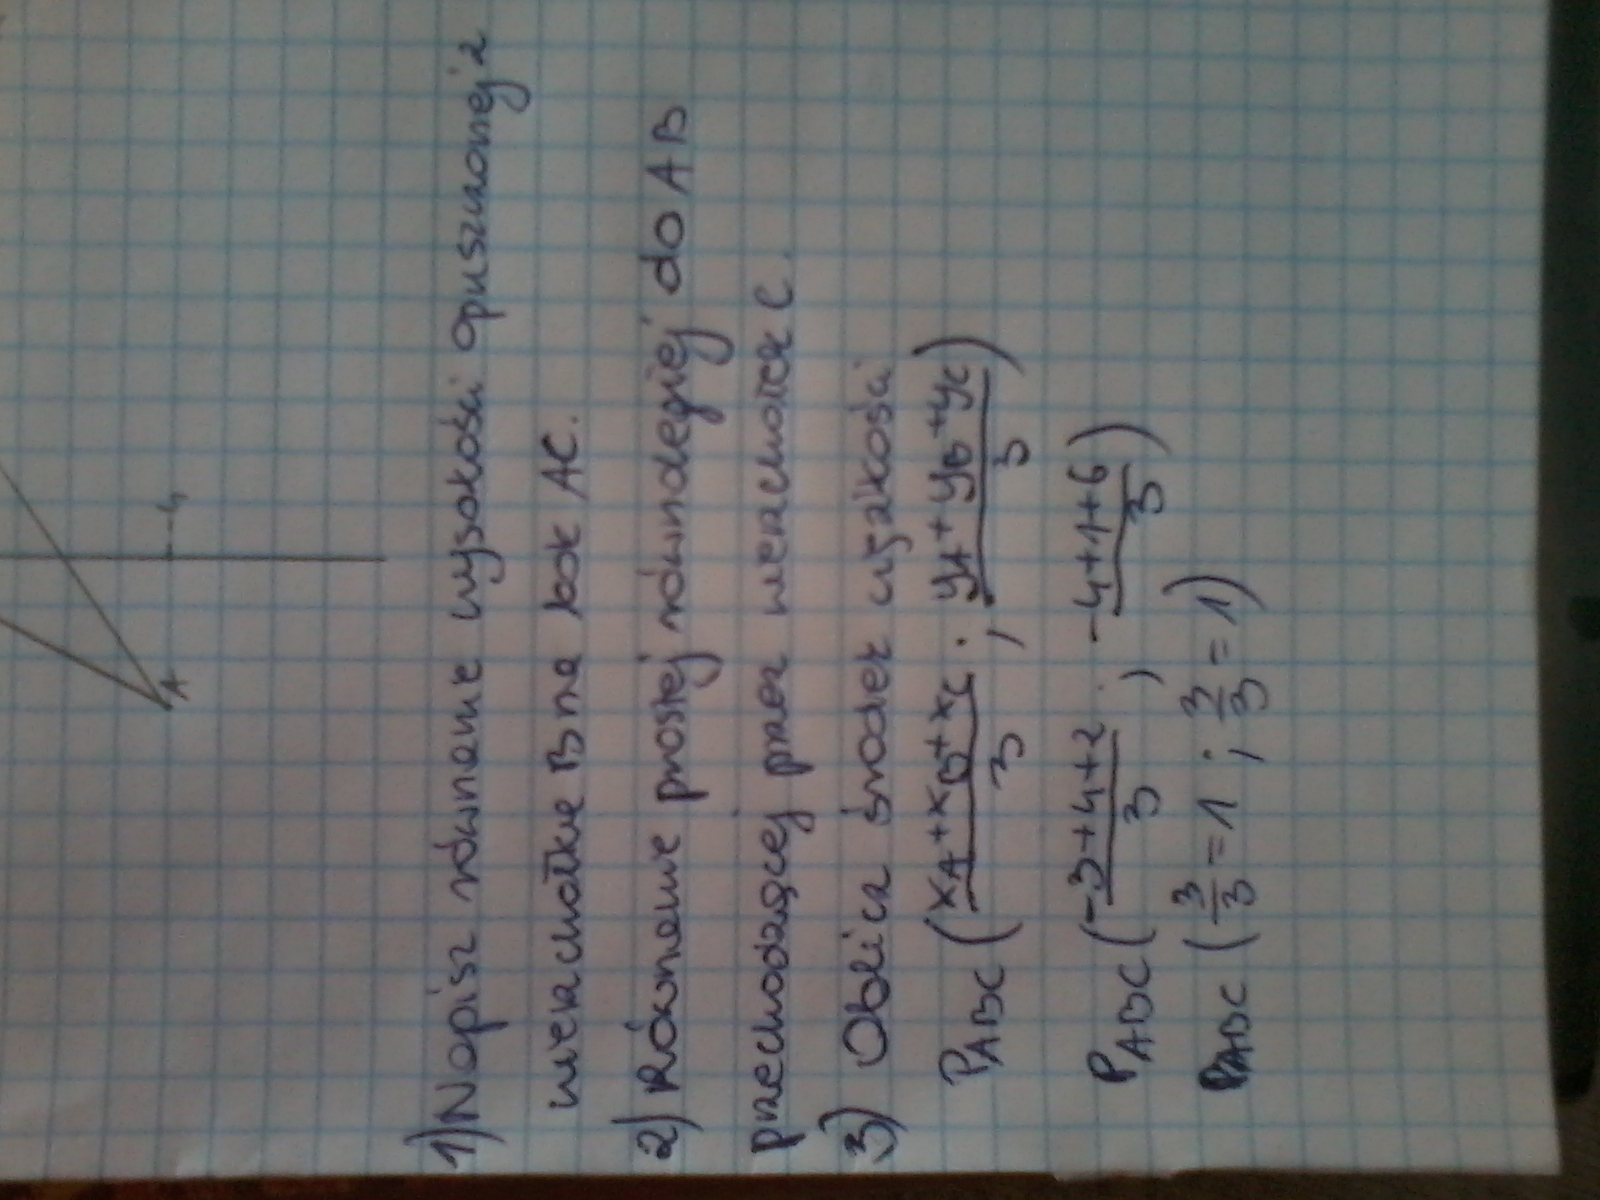 -4
A
1) Napisz równanie wysokości opuszczonej z
wierzchołka B na bok AC.
2) Równanie prostej równoległej do AB
przechodzącej przez wierzchołek C.
3) Oblicz środek ciężkości
P_ABC (x_A+x_B+x_C/3 ; y_A+y_B+y_C/3)
P_ABC (-3+4+2/3 ; -4+1+6/3)
P_ABC (3/3=1 ; 3/3=1)